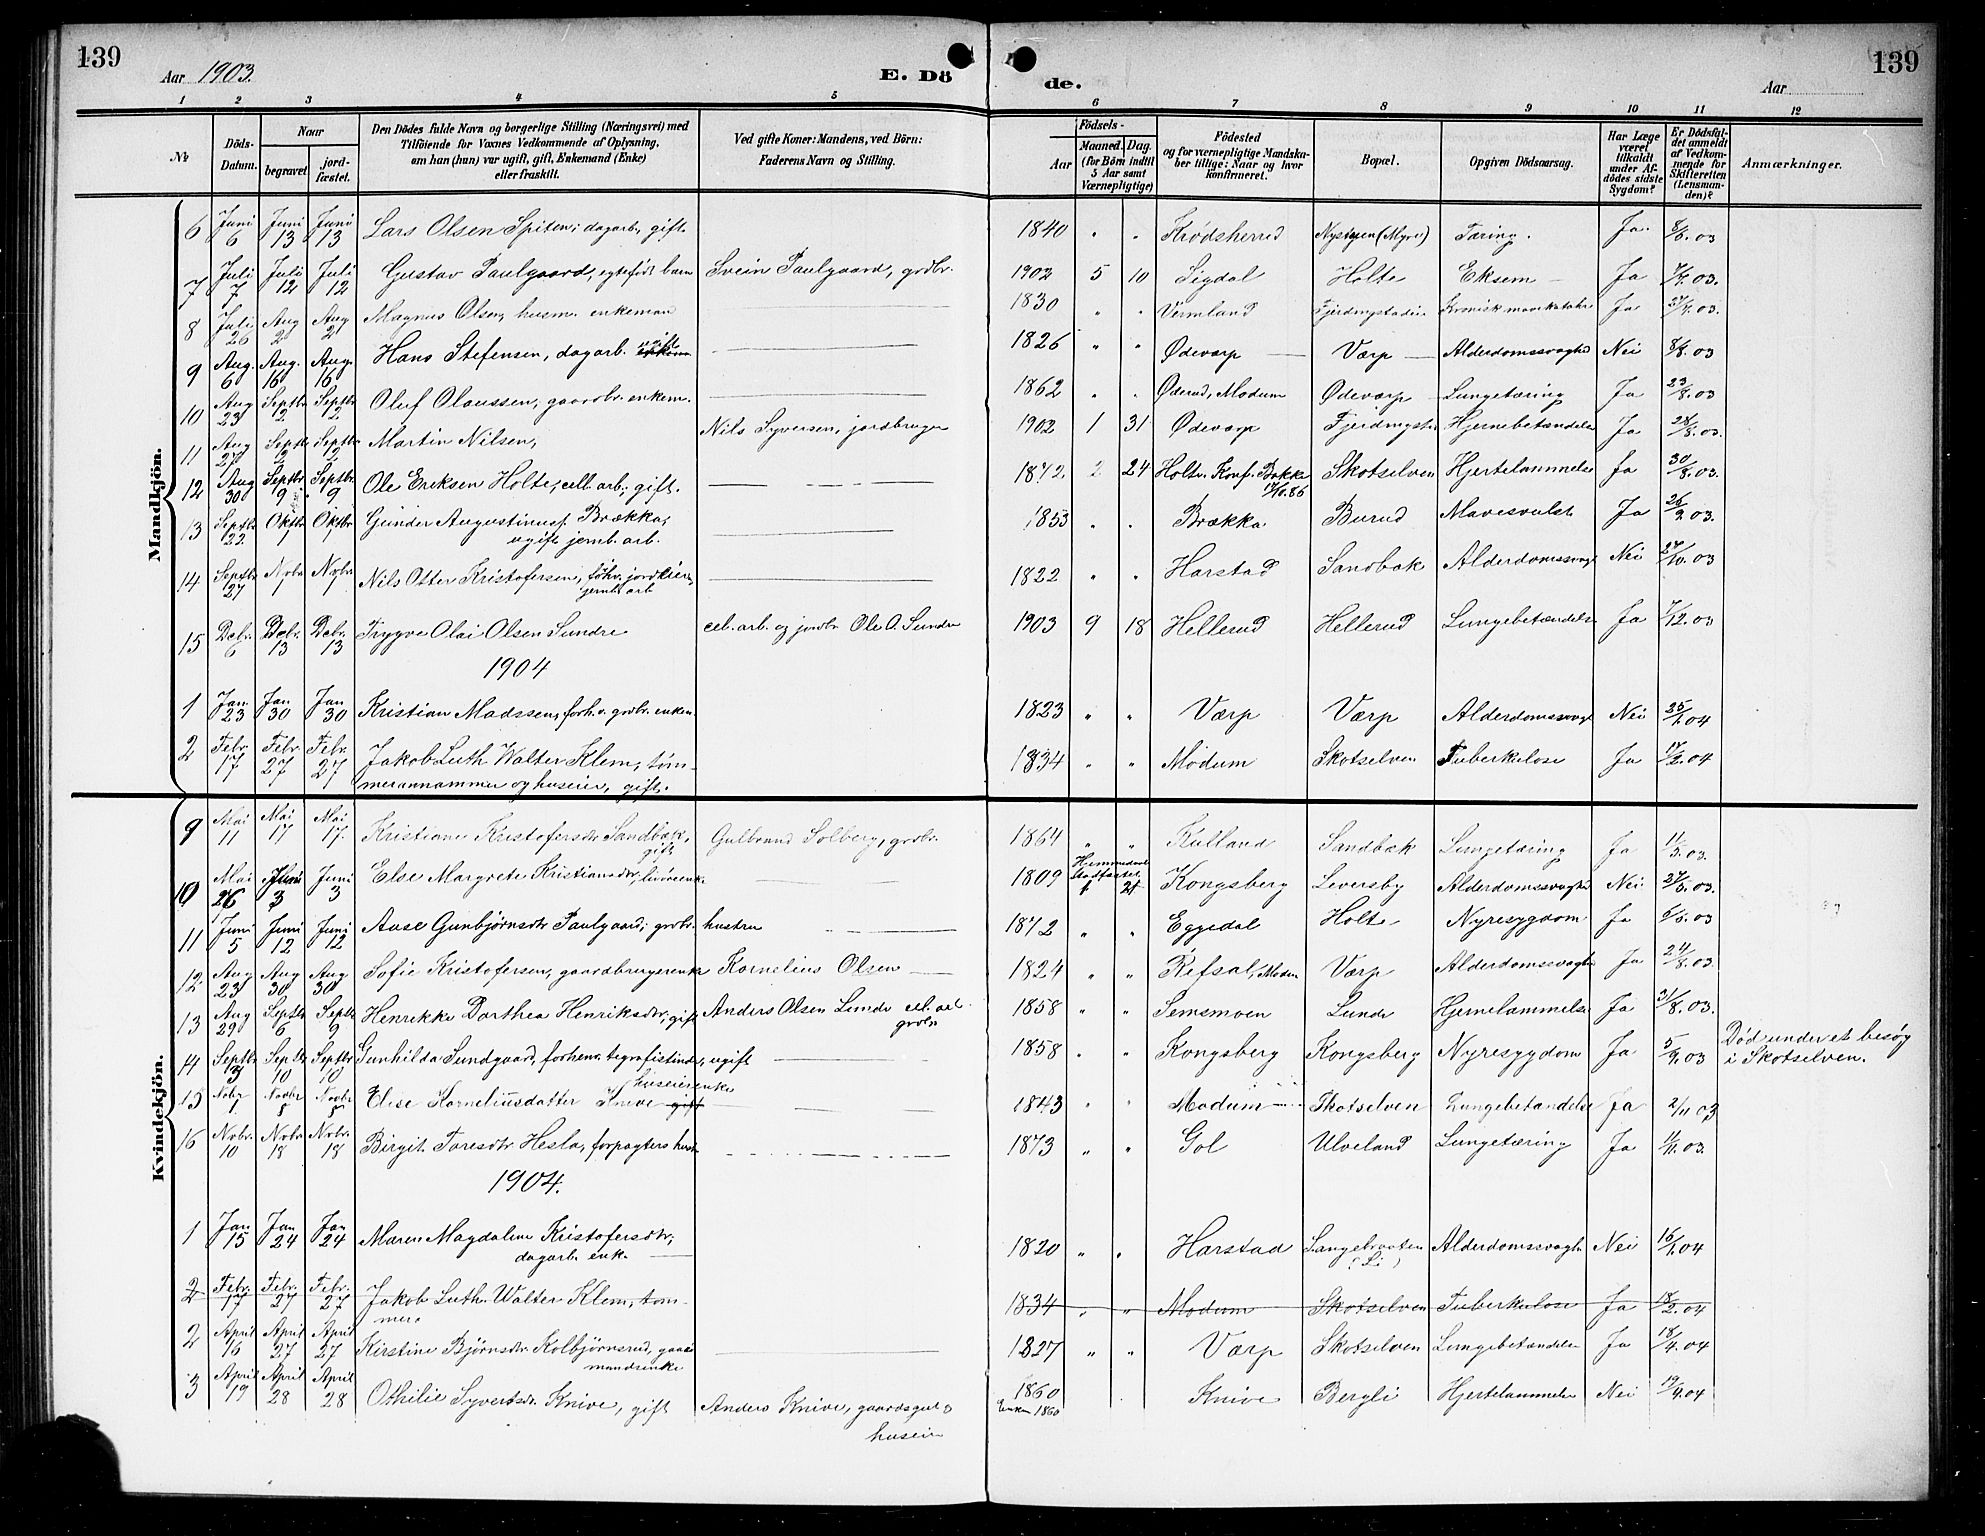 139
Aar 1903.
E. Dö
de.
Aar
139
1 2 3 4 5 6 7 8 9 10 11 12
No
Döds-Datum.
Naar
begravet
jord-fæstet.
Den Dödes fulde Navn og borgerlige Stilling (Næringsvei) med
Tilföiende for Voxnes Vedkommende af Oplysning,
om han (hun) var ugift, gift, Enkemand (Enke)
eller fraskilt.
Ved gifte Koner: Mandens, ved Börn:
Faderens Navn og Stilling.
Födsels-
Aar
Maaned. Dag.
(for Börn indtil
5 Aar samt
Værnepligtige)
Födested
og for værnepligtige Mandska-
ber tillige: Naar og hvor
konfirmeret.
Bopæl.
Opgiven Dödsaarsag.
Har Læge
været
tilkaldt
under Af-
dödes sidste
Sygdom?
Er Dödsfal-
det anmeldt
af Vedkom-
mende for
Skifteretten
(Lensman-
den)?
Anmærkninger.
Mandkjön.
6 Juni 6 Juni 13 Juni 13 Lars Olsen Spiten, dagarb., gift. 1840 " " Krødsherred Nystøen (Myre) Tæring. Ja. 8/6. 03
7 Juli 7 Juli 12 Juli 12 Gustav Paulgaard, egtefødt barn Svein Paulgaard, grdbr. 1902 5 10 Sigdal Holte Eksem Ja 7/7. 03.
8 Juli 26 Aug 2 Aug 2 Magnus Olsen, husm. enkeman 1830 " " Vermland Kronisk mavekatahr Ja 27/7. 03.
9 Aug. 6 Aug. 16 Aug. 16 Hans Stefensen, dagarb. ugift 1826 " " Ødeværp Værp Alderdomssvaghed Nei 8/8. 03
10 Aug 23 Septbr 2 Septbr 2 Oluf Olaussen, gaardbr. enkem. 1862 " " Øderud, Modum Ødeværp Lungetæring Ja 23/8. 03
11 Aug 27 Septbr 2 Septbr 2 Martin Nilsen, Nils Syversen, jordbruger 1902 1 31 Ødeværp Hjernebetændelse Ja 28/8. 03.
12 Aug 30 Septbr 9 Septbr. 9 Ole Eriksen Holte, cell. arb., gift. 1872. 2 24 Holte. Konf. Bakke
86 Skotselven Hjertelammelse Ja 30/8. 03.
13 Septbr 22 Oktbr 1 Oktbr 1 Gunder Augustinuss. Brækka,
ugift jernb. arb. 1853 " " Brækka Burud Mavesvulst Ja 26/9. 03.
14 Septbr 27 Nobr 1 Nobr 1 Nils Otter Kristofersen, jernb. arb 1822 " " Harstad Sandbak Alderdomssvagh. Nei 27/10. 03
15 Dcbr. 6 Dcbr. 13 Dcbr. 13 Trygve Olai Olsen Sundre cel. arb. og jordbr. Ole O. Sundre 1903 9 18 Hellerud Hellerud Lungebetændelse Ja 7/12. 03
1904
1 Jan. 23 Jan 30 Jan 30 Kristian Madssen, forh. v. grdbr. enkem. 1823 " " Værp Værp Alderdomssvagh Nei 25/1. 04
2 Febr. 17 Febr. 27 Febr. 27 Jakob Luth Walter Klem, tøm-
merannammer og huseier, gift. 1834 " " Modum Skotselven Tuberkulose Ja 17/2. 04
Kvindekjön.
9 Mai 11 Mai 17 Mai 17. Kristiane Kristofersdtr. Sandbæk,
gift Gulbrand Solberg, grdbr. 1864 " " Rulland Sandbæk Lungetæring Ja 11/5. 03.
10 Mai 26 Juni 3 Juni 3 Else Margrete Kristiansdtr, 1809 1 21 Kongsberg Leversby Alderdomssvaghed Nei 27/5. 03.
11 Juni 5 Juni 12 Juni 12 Aase Gunbjørnsdtr Paulgaard, grdbr. hustru 1872 " " Eggedal Holte Nyresygdom Ja 6/6. 03
12 Aug 23 Aug 30 Aug 30 Sofie Kristofersen, gaardbrugerenke Kornelius Olsen 1824 " " Refsal, Modum Værp Alderdomssvaghed Ja 24/8. 03
13 Aug 29 Septbr 6 Septbr 9 Henrikke Dorthea Henriksdtr, gift Anders Olsen Lunde cel. arb.
grdbr 1858 " " Semsmoen Lunde Hjernelammelse Ja 31/8. 03.
14 Septbr 3 Septbr 10 Septbr 10 Gunhilda Sundgaard, forhenv. tegrafistinde, ugift 1858 " " Kongsberg Kongsberg Nyresygdom Ja 5/9. 03 Død under et besøg
i Skotselven.
15 Nobr 1 Novbr 8 Novbr 8 Elise Korneliusdatter Knive gift huseierenke 1843 " " Modum Skotselven Lungebetændelse Ja 2/11 03
16 Nobr. 10 Nobr. 18 Nobr. 18 Birgit Toresdtr. Hesla, forpagters hustr 1873 " " Gol Ulveland Lungetæring Ja 11/11. 03.
1904.
1 Jan 15 Jan 24 Jan 24 Maren Magdalene Kristofersdtr,
dagarb. enke 1820 " " Harstad Langebraaten
(Li) Alderdomssvagh. Nei 16/1. 04
2 Febr. 17 Febr. 27 Febr. 27 Jakob Luth. Walter Klem, tøm-
mer. 1834 " " Modum Skotselven Tuberkulose Ja 18/2. 04
2 April 16 April 27 April 27 Kirstine Bjørnsdtr Kolbjørnsrud, gaard
mandsenke 1827 " " Værp Skotselven Lungebetændelse Ja 18/4. 04
3 April 19 April 28 April 28 Othilie Syvertsdtr. Knive, gift Anders Knive, gaardsgut og
huseier 1860 Knive Bergli Hjertelammelse Nei 19/4. 04